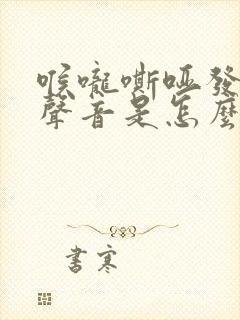 喉嚨嘶啞發
聲音是怎麼
書寒